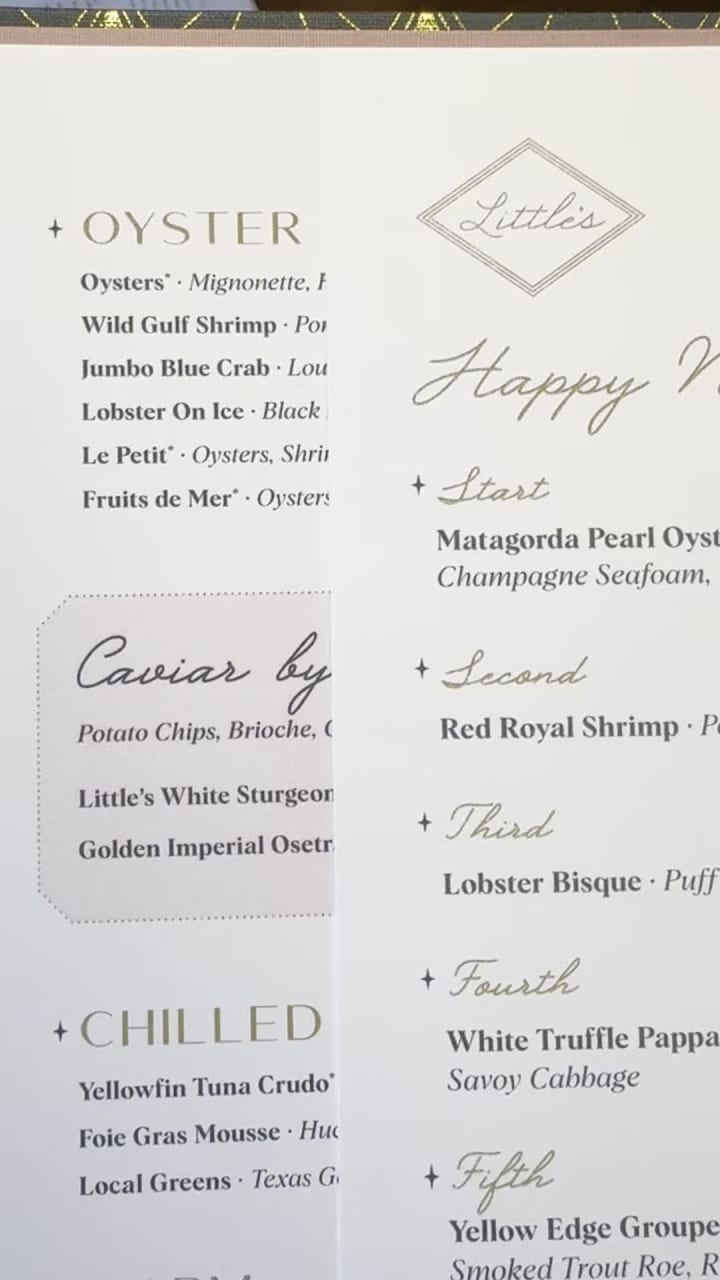 OYSTER
Oysters* · Mignonette,
Wild Gulf Shrimp ·
Jumbo Blue Crab · Lou
Lobster On Ice · Black
Le Petit* · Oysters, Shri
Fruits de Mer* · Oysters
Caviar by
Potato Chips, Brioche,
Little's White Sturgeon
Golden Imperial Osetr
CHILLED
Yellowfin Tuna Crudo*
Foie Gras Mousse · Hu
Local Greens · Texas G
Little's
Happy N
Start
Matagorda Pearl Oyst
Champagne Seafoam,
Second
Red Royal Shrimp · P
Third
Lobster Bisque · Puff
Fourth
White Truffle Pappa
Savoy Cabbage
Fifth
Yellow Edge Groupe
Smoked Trout Roe, R